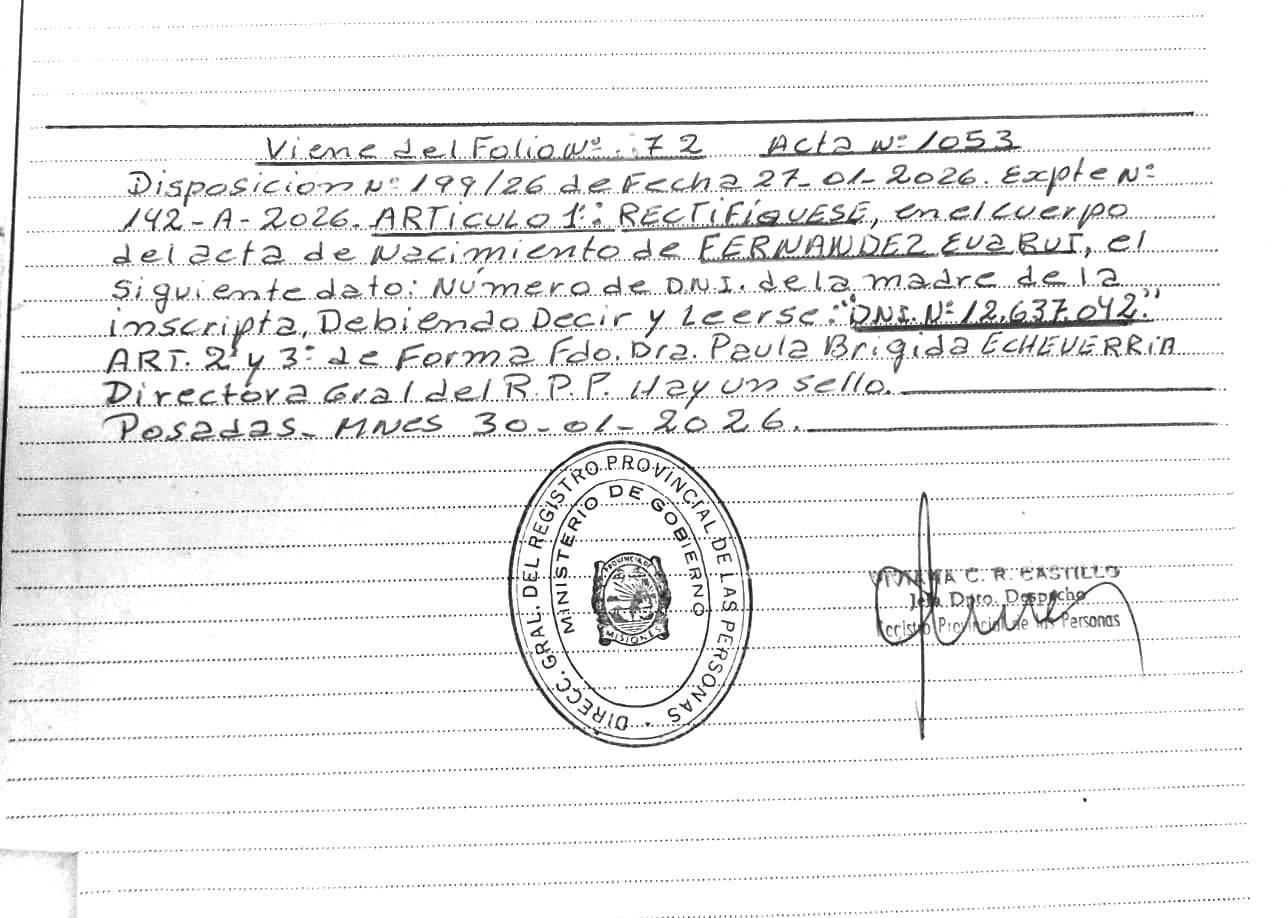 Viene del Folio Nº 72 Acta Nº 1053
Disposicion Nº 199/26 de Fecha 27-01-2026. Expte Nº
142-A-2026. ARTICULO 1º: RECTIFÍQUESE, en el cuerpo
del acta de Nacimiento de FERNANDEZ Eva RUI, el
siguiente dato: Número de D.N.I. de la madre de la
inscripta, Debiendo Decir y Leerse: "DNI. Nº 12.637.042."
ART. 2º y 3º de Forma Fdo. Dra. Paula Brigida ECHEVERRIA
Directora Gral del R.P.P. Hay un sello.
Posadas - MNES 30-01-2026.
DIRECC. GRAL. DEL REGISTRO PROVINCIAL DE LAS PERSONAS
MINISTERIO DE GOBIERNO
PROVINCIA DE
MISIONES
C. R. CASTILLO
Jefa Dpto. Despacho
Registro Provincial de las Personas